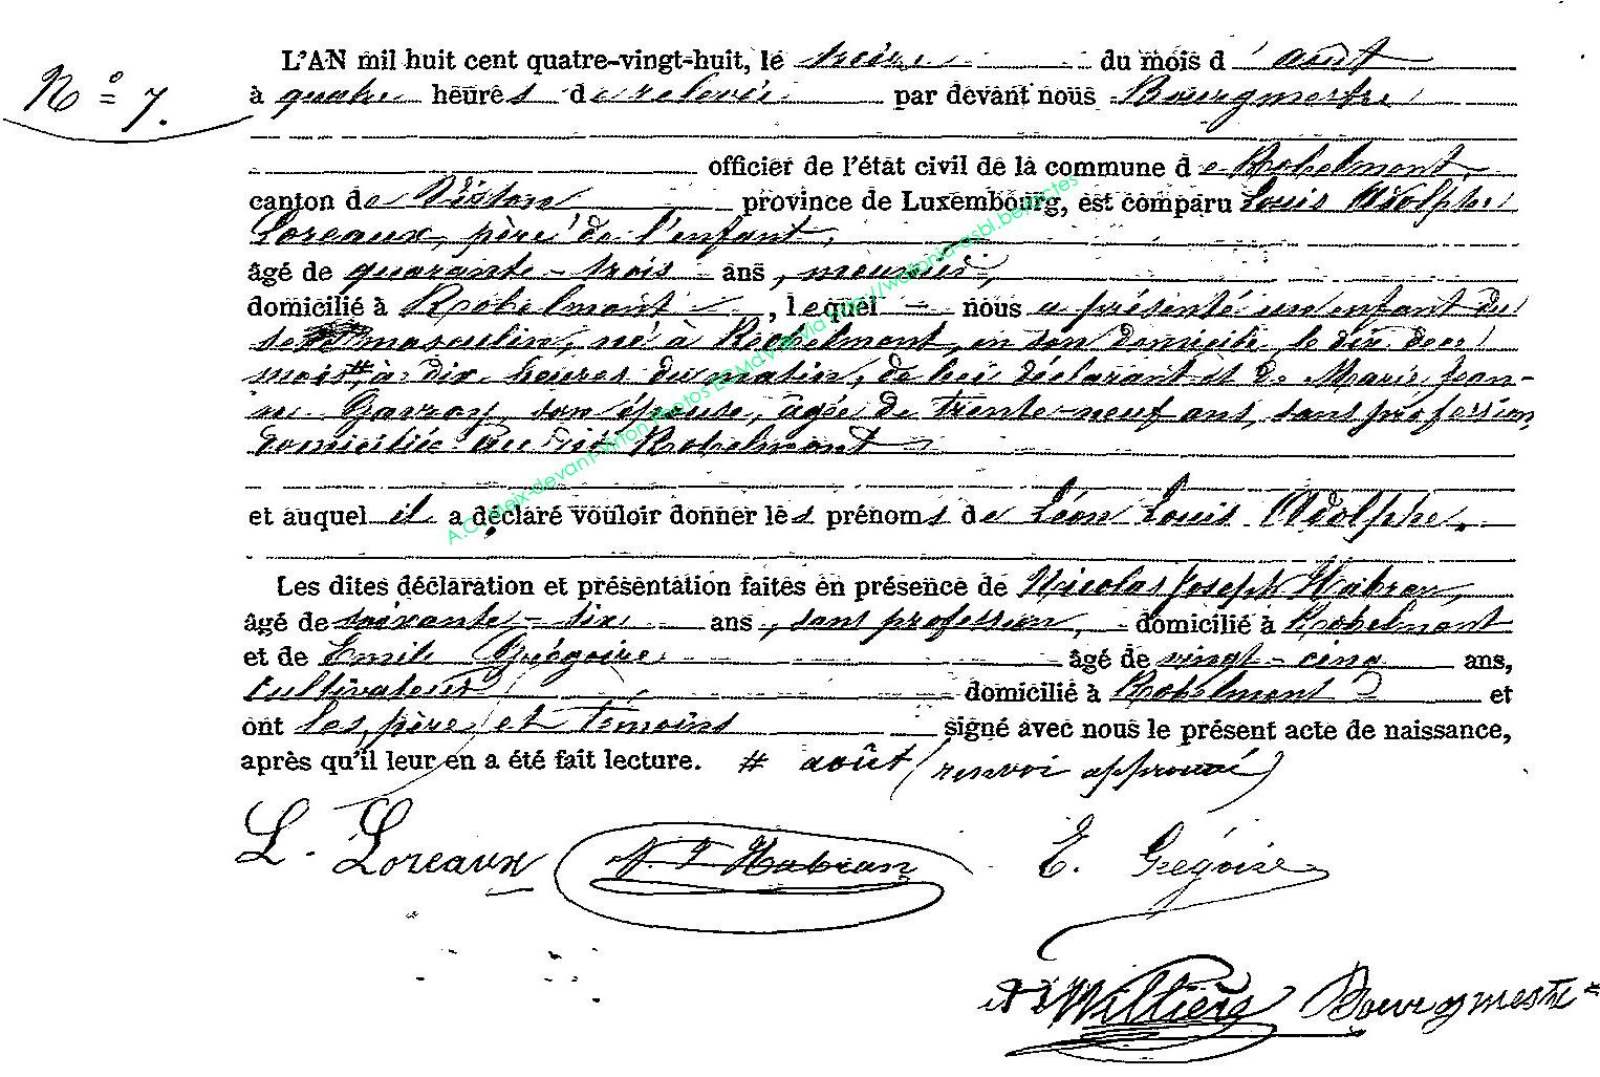 L'AN mil huit cent quatre-vingt-huit, le treize du mois d'août
N° 7.
à quatre heures de relevée par devant nous Bourgmestre
officier de l'état civil de la commune de Robelmont
canton de Virton province de Luxembourg, est comparu Louis Adolphe
Loreaux, père de l'enfant,
âgé de quarante-trois ans, meunier,
domicilié à Robelmont, lequel nous a présenté un enfant du
sexe masculin, né à Robelmont, en son domicile le dix de ce
mois #, à dix heures du matin, de lui déclarant et de Marie Jean-
ne Gavroy, son épouse, âgée de trente-neuf ans, sans profession,
domiciliée au dit Robelmont
et auquel il a déclaré vouloir donner les prénoms de Léon Louis Adolphe.
Les dites déclaration et présentation faites en présence de Nicolas Joseph Habran,
âgé de soixante-six ans, sans profession, domicilié à Robelmont
et de Emile Grégoire âgé de vingt-cinq ans,
cultivateur domicilié à Robelmont et
ont les père et témoins signé avec nous le présent acte de naissance,
après qu'il leur en a été fait lecture. # août (renvoi approuvé)
L. Loreaux N. J. Habran E. Grégoire
Willière Bourgmestre
A.C. Meix-devant-Virton Photos EGMdyle via http://wallonia-asbl.be/actes